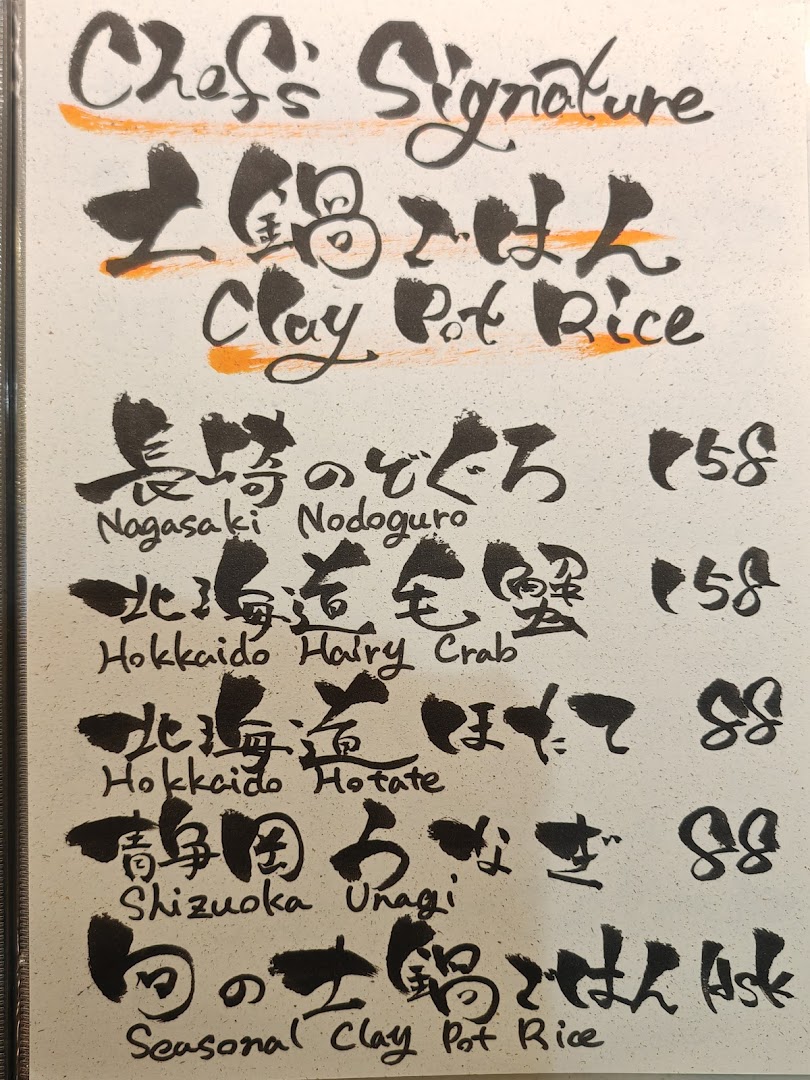 Chef's Signature
土鍋ごはん
Clay Pot Rice
長崎のどぐろ 158
Nagasaki Nodoguro
北海道毛蟹 158
Hokkaido Hairy Crab
北海道ほたて 88
Hokkaido Hotate
静岡うなぎ 88
Shizuoka Unagi
旬の土鍋ごはん Ask
Seasonal Clay Pot Rice